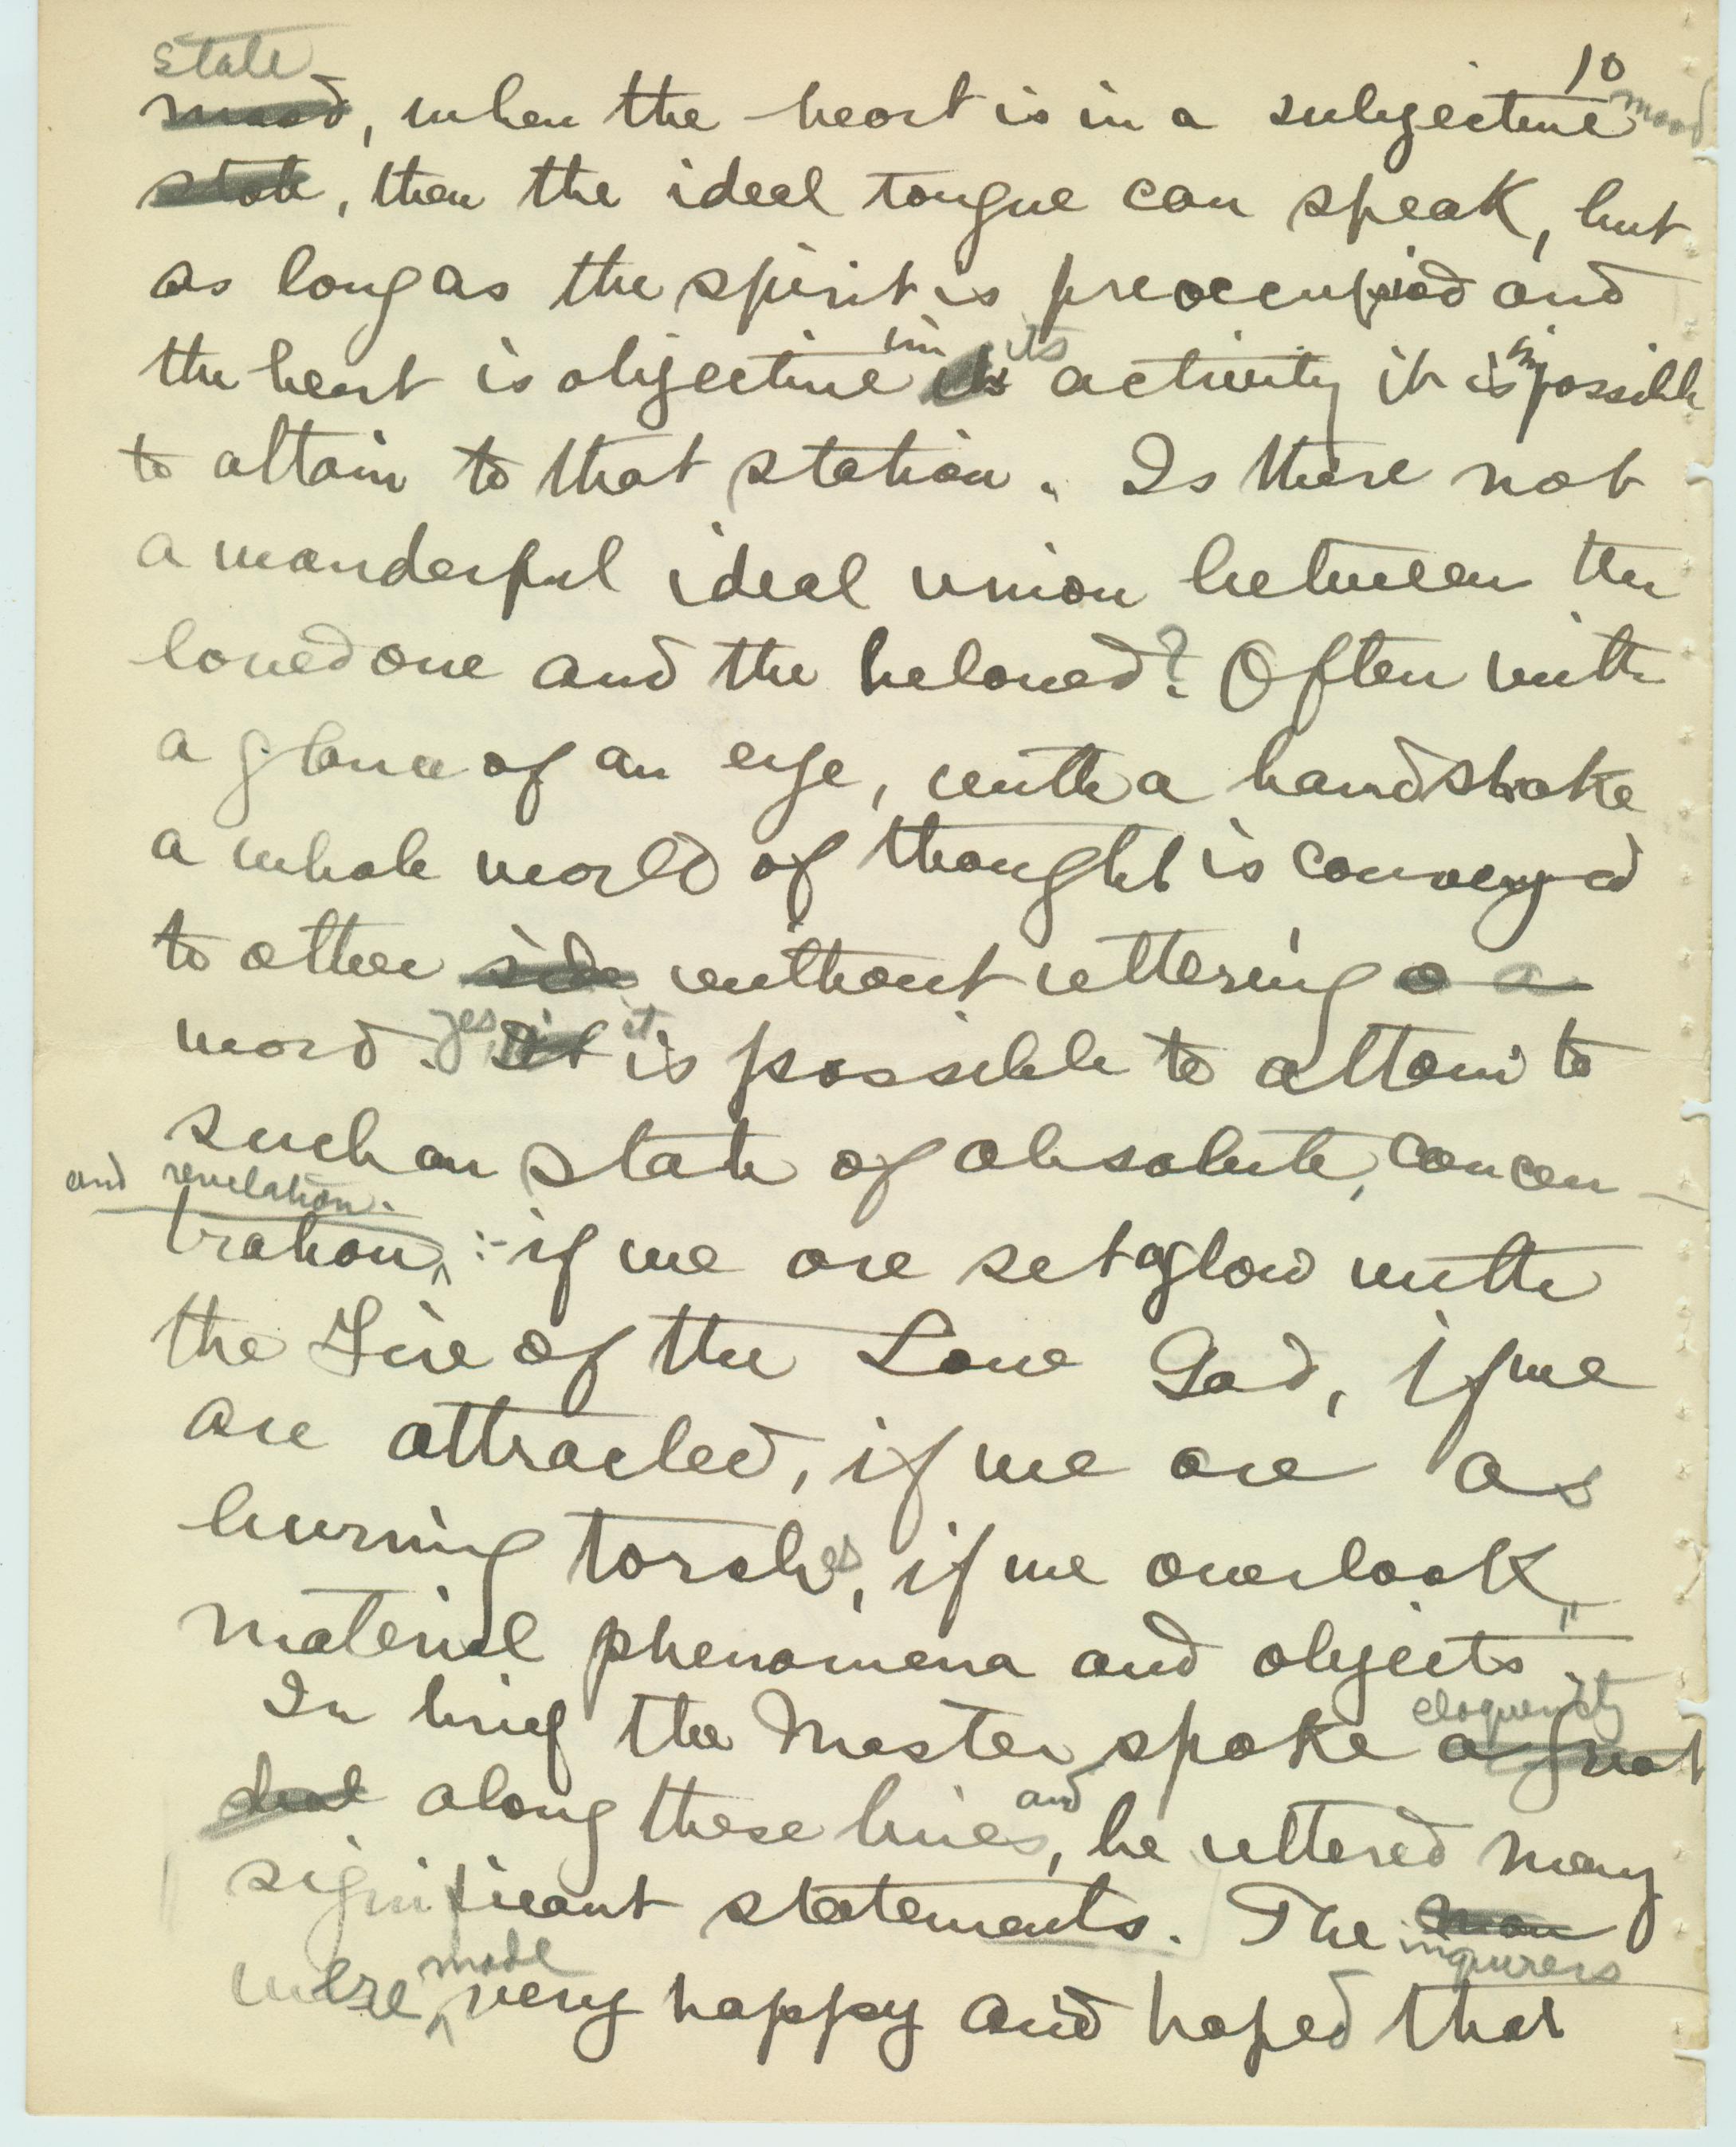 state 10
~~mood~~, when the heart is in a subjective mood
~~state~~, then the ideal tongue can speak, but
as long as the spirit is preoccupied and
the heart is objective in ~~its~~ its activity it is impossible
to attain to that station. Is there not
a wonderful ideal union between the
loved one and the beloved? Often with
a glance of an eye, with a handshake
a whole world of thought is conveyed
to other ~~side~~ without uttering a ~~a~~
word. yes, ~~It~~ it is possible to attain to
such an state of absolute, concen-
and revelation.
tration :- if we are set aglow with
the Fire of the Love God, if we
are attracted, if we are as
burning torches, if we overlook
material phenomena and objects.
In brief the Master spoke eloquently ~~a great~~
~~deal~~ along these lines, and he uttered many
significant statements. The ~~man~~ inquirers
were made very happy and hoped that